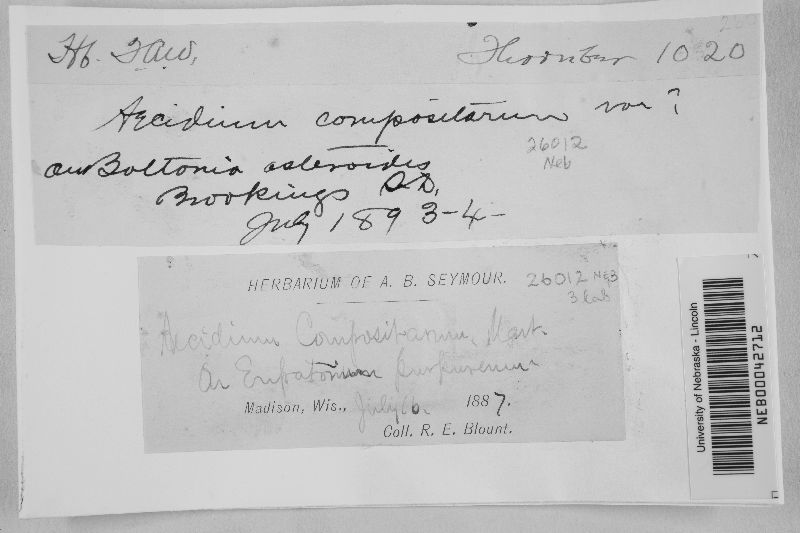 Hb. TAW.
Thornber 1020
Aecidium compositarum var?
26012
Neb
on Boltonia asteroides
Brookings S.D.
July 1893-4-
HERBARIUM OF A. B. SEYMOUR.
26012 NEB
Aecidium Compositarum, Mart.
On Eupatorium purpureum
Madison, Wis., July 16. 1887.
Coll. R. E. Blount.
University of Nebraska - Lincoln
NEB00042712